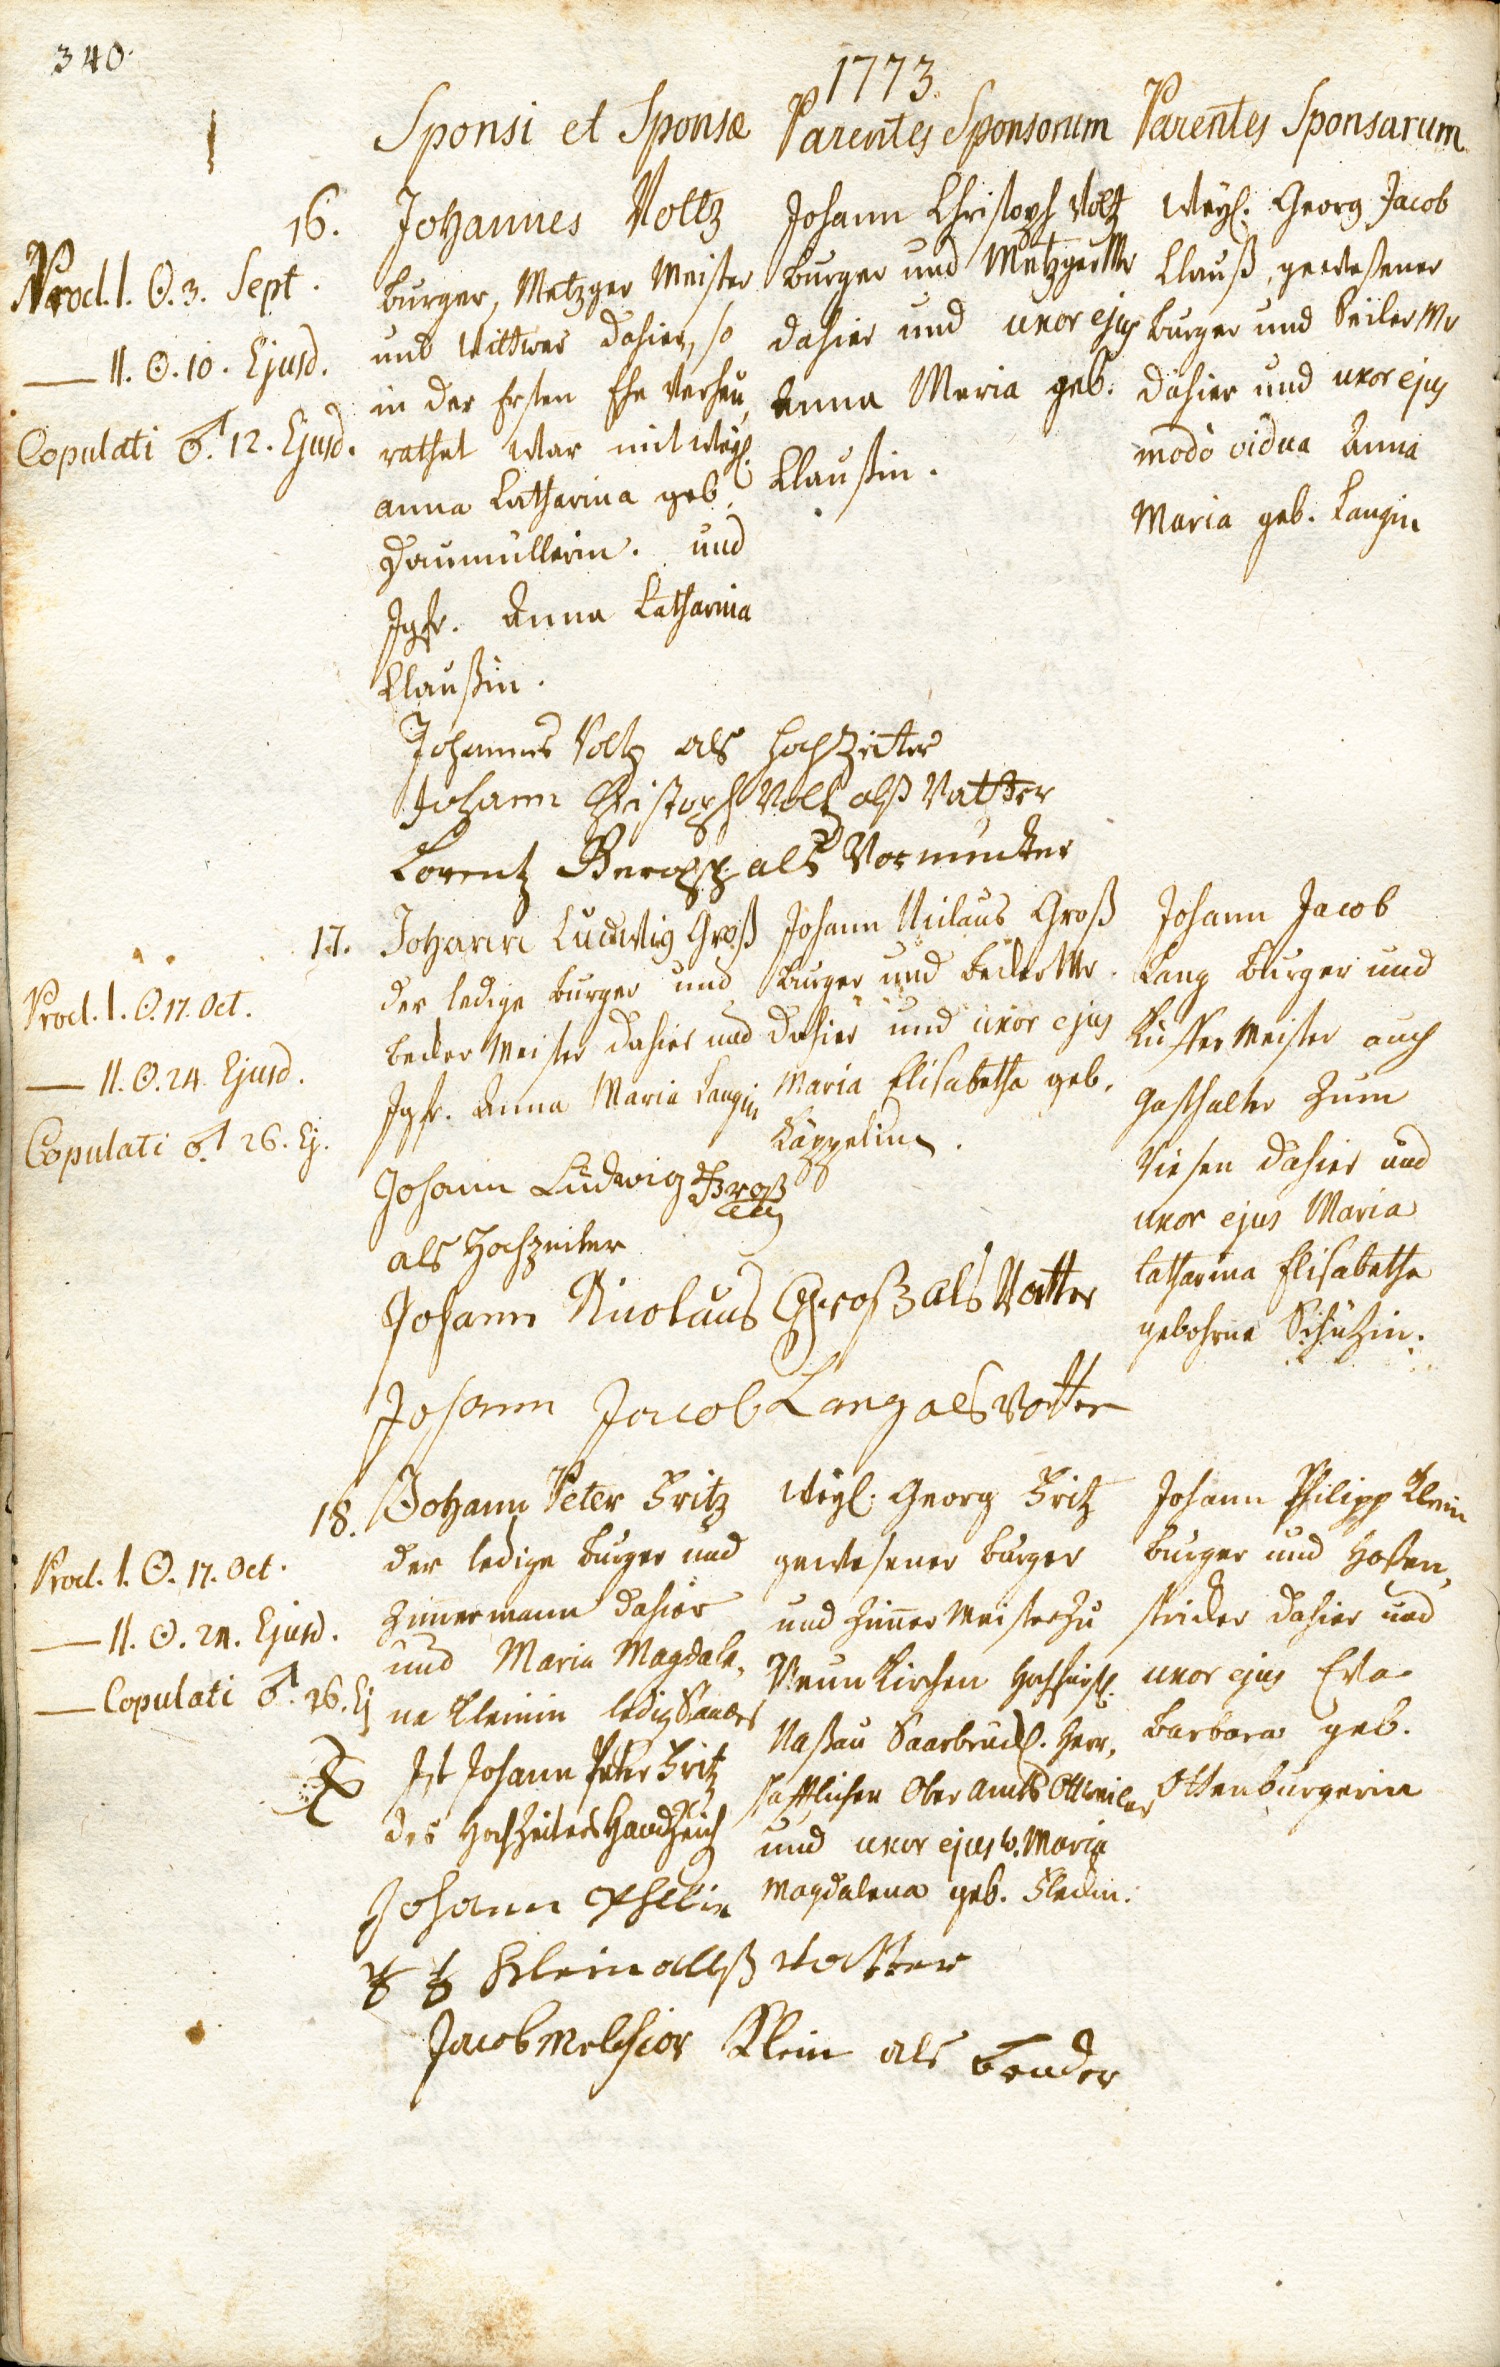 340.
1773.
Sponsi et Sponsæ
Parentes Sponsorum
Parentes Sponsarum
16.
Procl. I. ☉. 3. Sept.
— II. ☉. 10. Ejusd.
Copulati ♂. 12. Ejusd.
Johannes Voltz
burger, Metzger Meister
und Wittwer dahier, so
in der Ersten Ehe verheu,
rathet war mit weyl.
anna Catharina geb.
Daumüllerin. und
Jgfr. Anna Catharina
Claußin.
Johann Christoph Voltz
burger und Metzger Mr
dahier und uxor ejus
Anna Maria geb.
Claußin.
Weyl. Georg Jacob
Clauß, gewesener
burger und Seiler Mr
dahier und uxor ejus
modo vidua Anna
Maria geb. Langin
Johannes Voltz als Hochzeiter
Johann Christoph Voltz alß Vatter
Lorentz als Vormünder
17.
Procl. I. ☉. 17. Oct.
— II. ☉. 24. Ejusd.
Copulati ♂ 26. Ej.
Johann Ludwig Groß
der ledige burger und
becker Meister dahier und
Jgfr. Anna Maria Langin
Johann Niclaus Groß
burger und becker Mr.
dahier und uxor ejus
Maria Elisabetha geb.
Käppelin.
Johann Jacob
Lang burger und
Küffer Meister auch
Gasthalter zum
Riesen dahier und
uxor ejus Maria
Catharina Elisabetha
gebohrne Schüzin.
Johann Ludwig Groß
als Hochzeiter
Johann Nicolaus Groß als Vatter
Johann Jacob Lang als Vatter
18.
Procl. I. ☉. 17. Oct.
— II. ☉. 24. Ejusd.
— Copulati ♂. 26. Ej
Johann Peter Fritz
der ledige burger und
Zimmermann dahier
und Maria Magdale,
na Kleinin ledig Standes
Weyl. Georg Fritz
gewesener burger
und Zimmer Meister zu
Neunkirchen Hochfürstl.
Naßau Saarbrück. Herr,
schafftlichen Ober Amts Ottweiler
und uxor ejus w. Maria
Magdalena geb.
Johann Philipp Klein
burger und Hosen,
stricker dahier und
uxor ejus Eva
barbara geb.
Ottenburgerin
Ist Johann Peter Fritz
des Hochzeiters Handzeich
Johann
Klein allß vatter
Jacob Melchior Klein als bruder